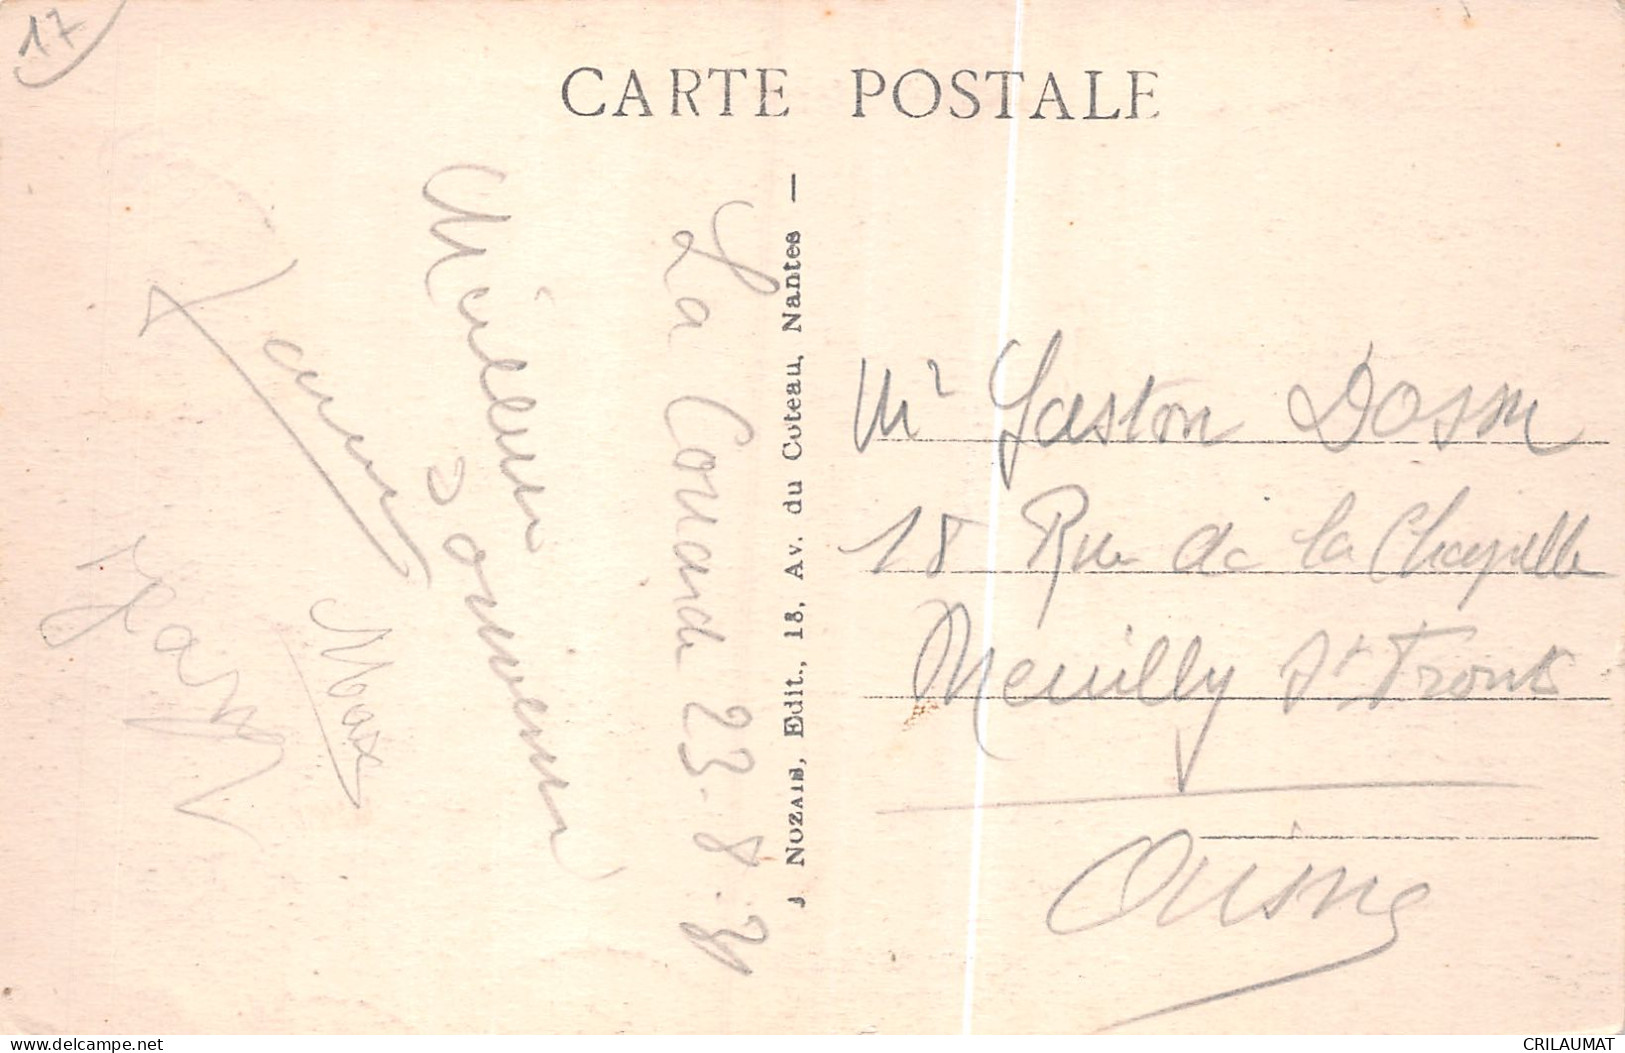 17
CARTE POSTALE
La Couarde 23.8.
Meilleur
Souvenir
Max
J NOZAIS, Edit., 18, Av. du Coteau, Nantes —
Mr Gaston
18 Rue de la Chapelle
Neuilly St Front
Aisne
delcampe.net
CRILAUMAT